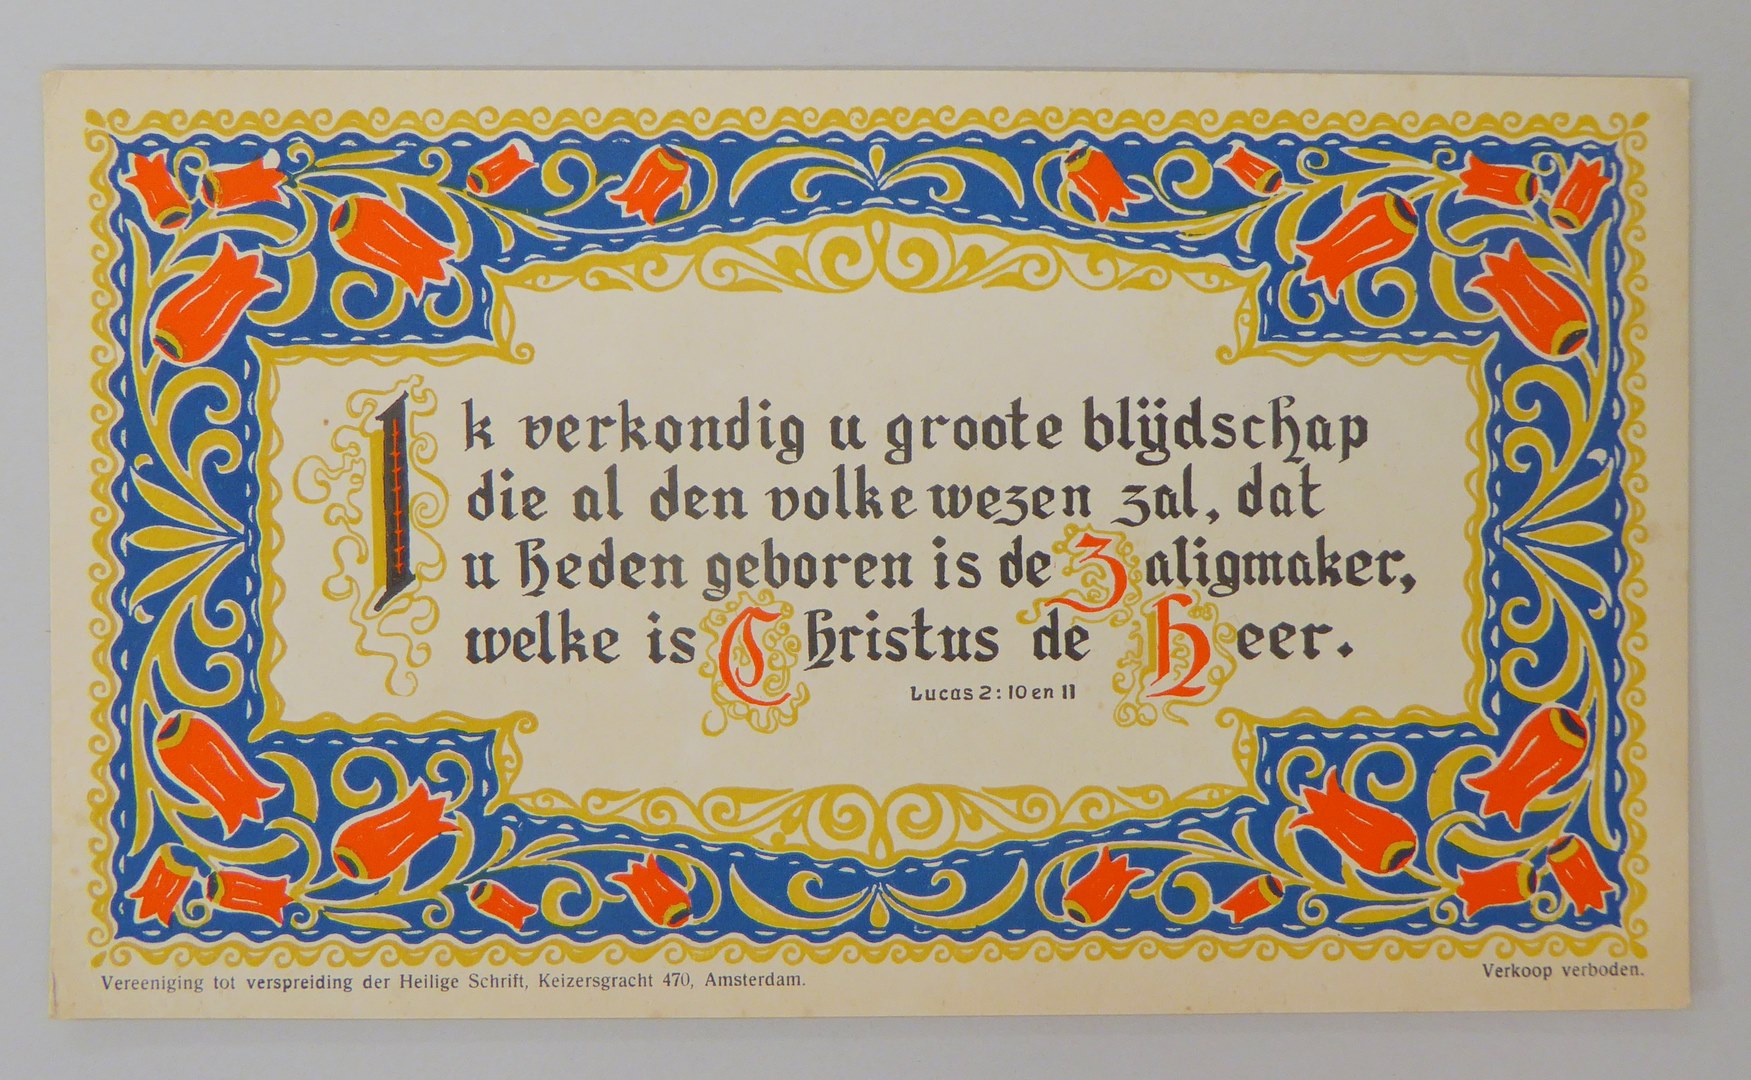 Ik verkondig u groote blijdschap
die al den volke wezen zal, dat
u heden geboren is de Zaligmaker,
welke is Christus de Heer.
Lucas 2:10 en 11
Vereeniging tot verspreiding der Heilige Schrift, Keizersgracht 470, Amsterdam.
Verkoop verboden.